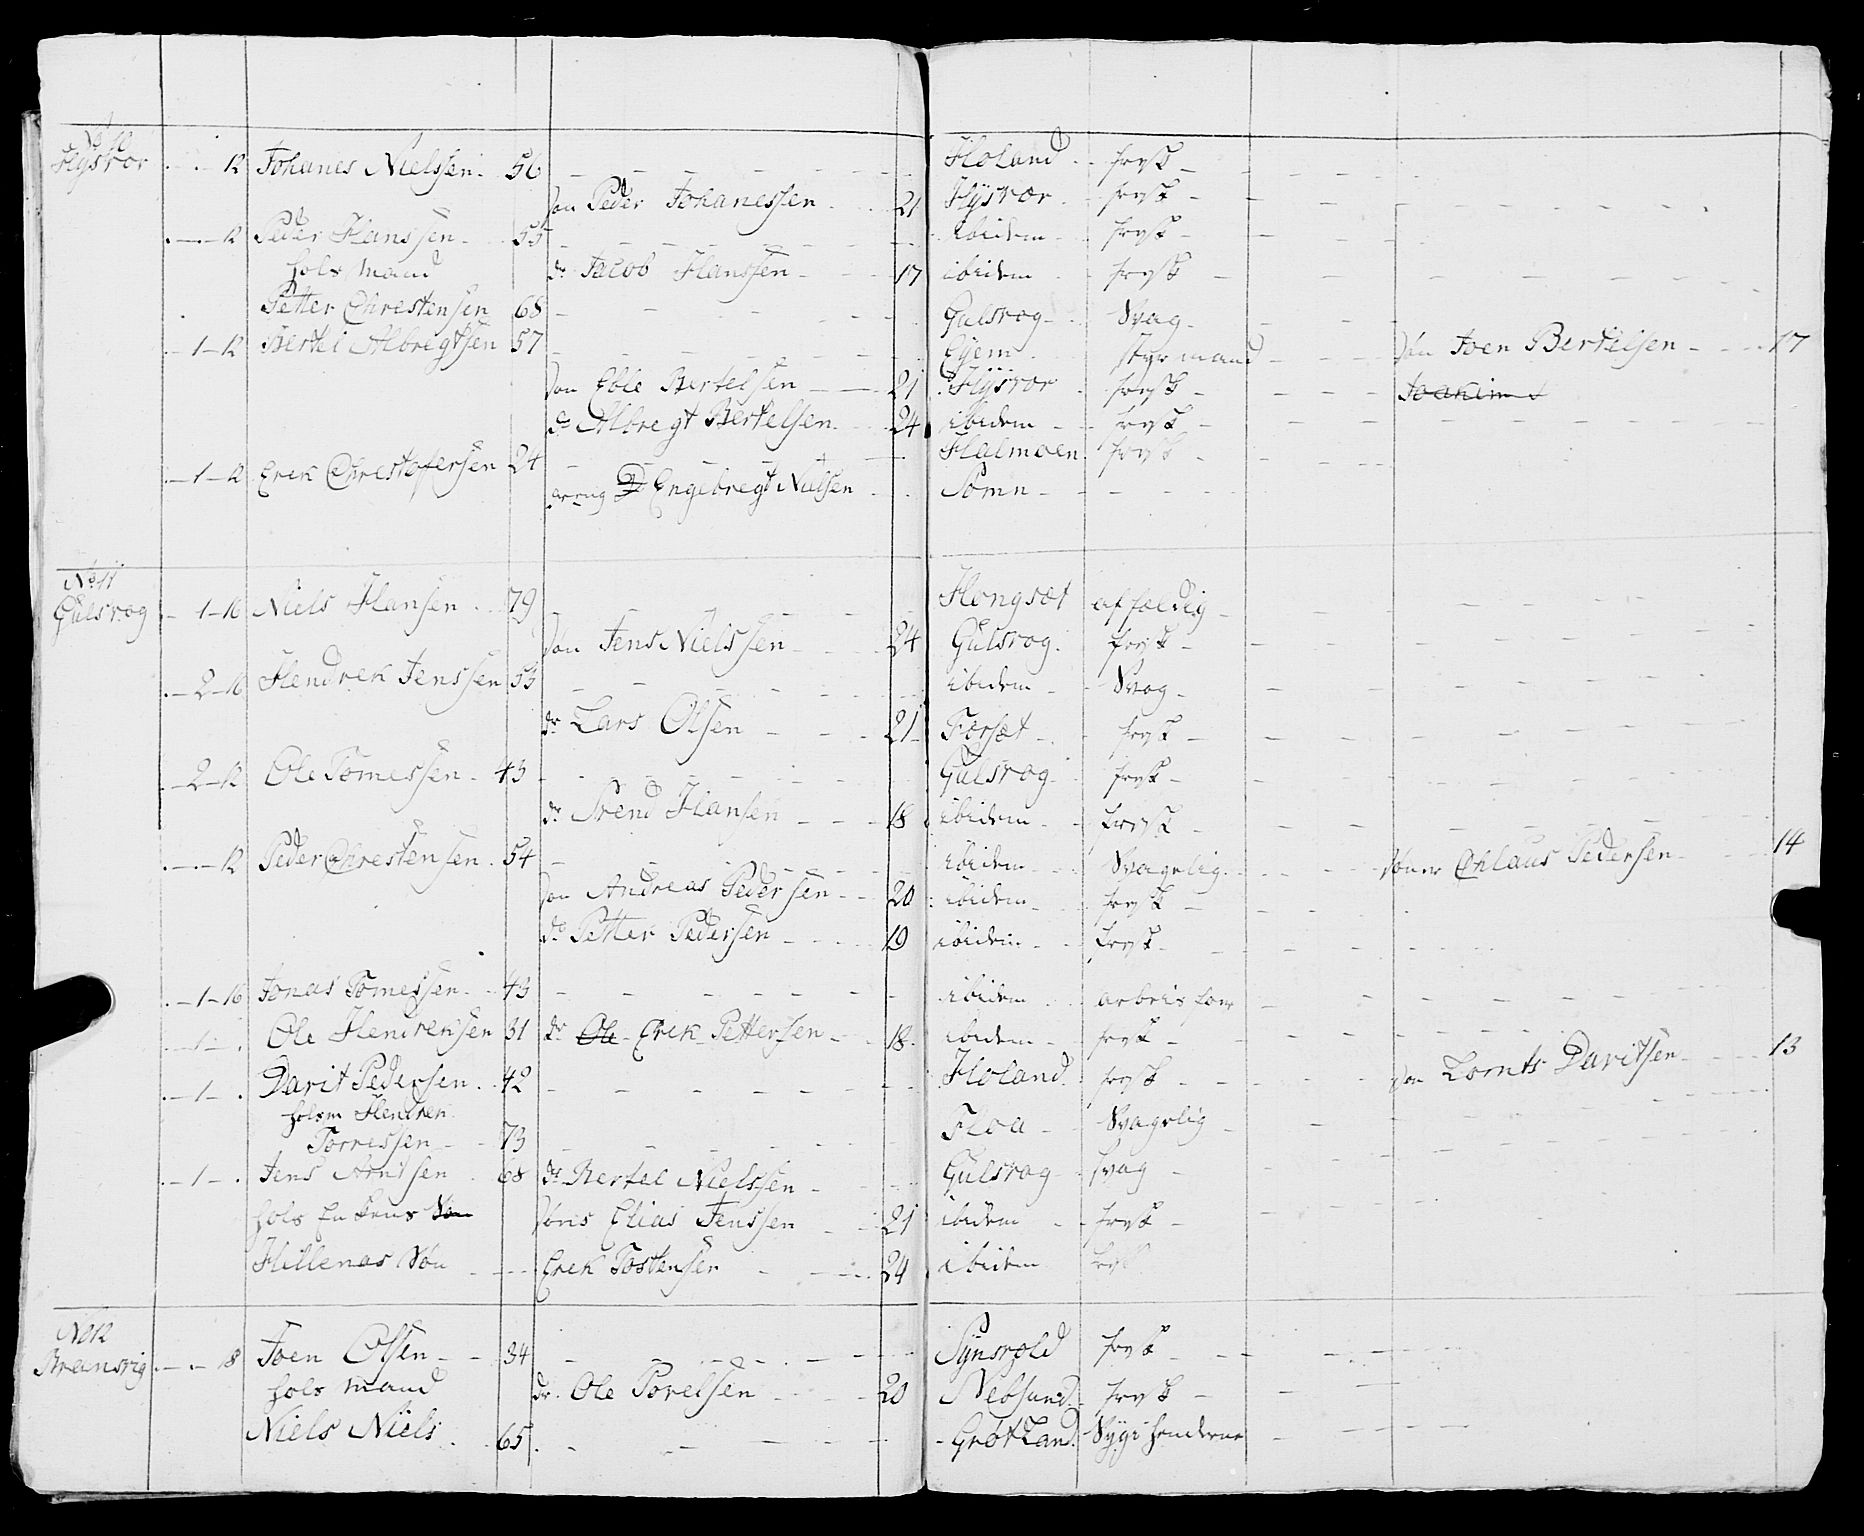 No 10
Hysvær - - 12 Johanes Nielssen 56 Holand frysk
søn Peder Johanessen 21 Hysvær frysk
- - 12 Peder Hanssen 55 ibidem frysk
hols mand dr Jacob Hanssen 17 ibidem frysk
Petter Chrestensen 68 Gulsvog Svag
- 1 - 12 Bertel Albregtsen 57 styrmand søn Joen Bertelsen 17
søn Eble Bertelsen 21 Hysvær frysk Joakim
do Albregt Bertelsen 24 ibidem frysk
- 1 - 12 Erek Chrestofersen 24 Halmoen frysk
Engebregt Nielsen Somn
No 11
Gulsvog - 1 - 16 Niels Hansen 79 Hongsæt affældig
søn Jens Nielssen 24 Gulsvog frysk
- 2 - 16 Hendrek Jenssen 53 ibidem Svag
dr Lars Olsen 21 Forsæt frysk
- 2 - 12 Ole Tomessen 43 Gulsvog frysk
dr Svend Hansen 18 ibidem frysk
- - 12 Peder Chrestensen 54 ibidem Svagelig sønner Ohlaus Pedersen 14
søn Andreas Pedersen 20 ibidem frysk
do Petter Pedersen 19 ibidem frysk
- 1 - 16 Jonas Tomessen 43 ibidem
- 1 - Ole Hendreksen 31 dr Ole Erek Pettersen 18 ibidem frysk
- 1 - Davit Pedersen 42 Holand frysk søn Lornts Davitsen 13
holsm Hendrek
Torressen 73 Floa Svagelig
- 1 - Jens Arntsen 68 dr Bertel Nielssen Gulsvog svag
hols En Søn søns Elias Jenssen 21 ibidem frysk
Hillenas Søn Erek Tostensen 24 ibidem
No 12
Brænsvig - - 18 Joen Olsen 34 frysk
hols mand dr Ole Torelsen 20 Nebsund frysk
Niels Niels 65 Grotland Syg i henderne